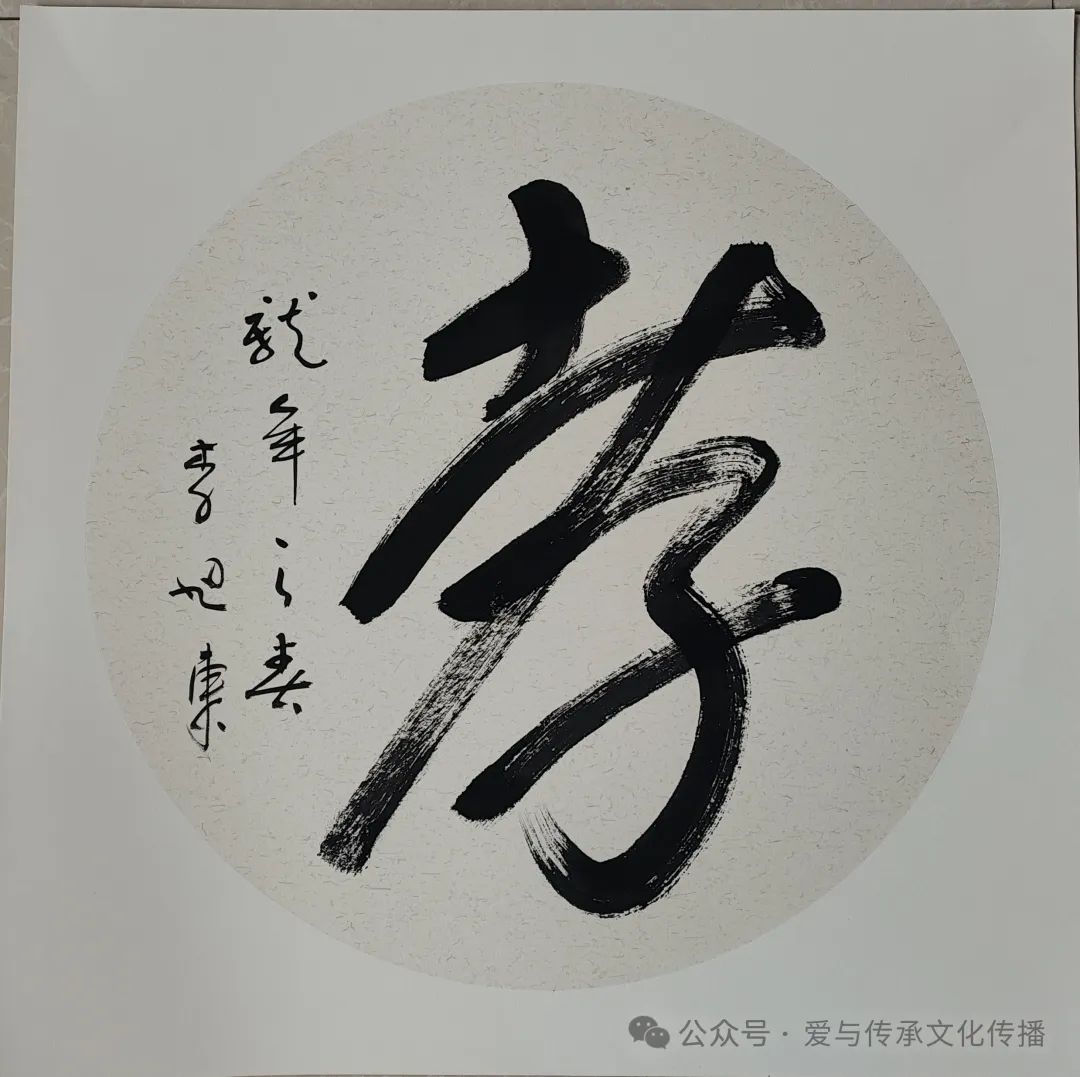 孝
龍年之春
李旭東
公众号·爱与传承文化传播